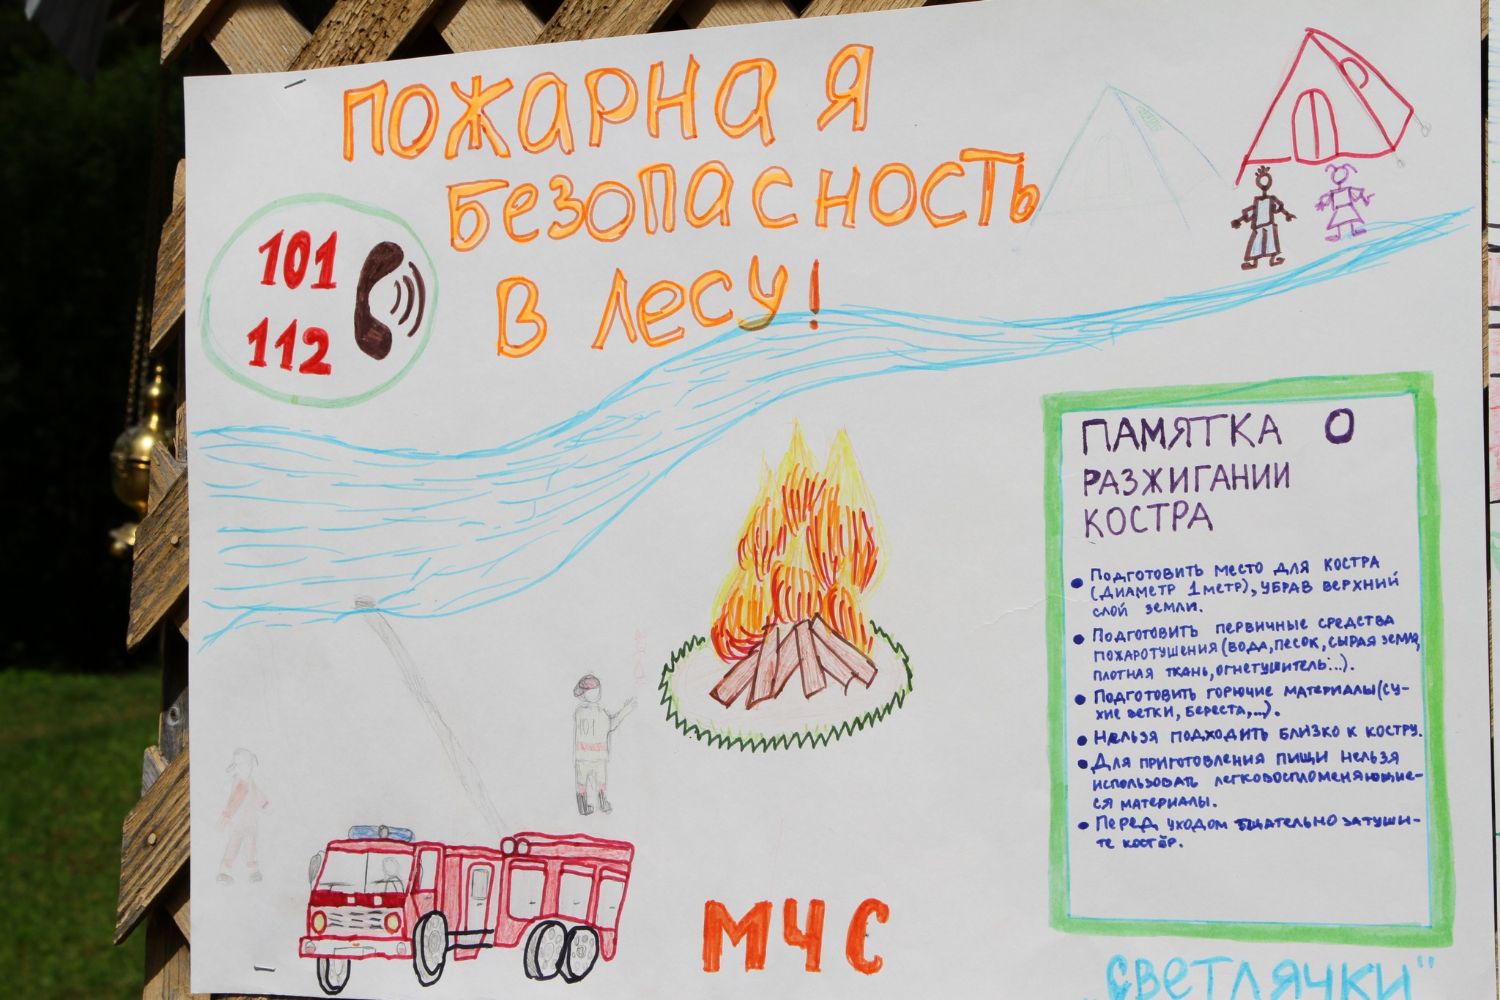 ПОЖАРНАЯ
БЕЗОПАСНОСТЬ
В ЛЕСУ!
101
112
ПАМЯТКА О
РАЗЖИГАНИИ
КОСТРА
• Подготовить место для костра
(диаметр 1 метр), убрав верхний
слой земли.
• Подготовить первичные средства
пожаротушения (вода, песок, сырая земля,
плотная ткань, огнетушитель...).
• Подготовить горючие материалы (су-
хие ветки, береста,...).
• Нельзя подходить близко к костру.
• Для приготовления пищи нельзя
использовать легковоспломеняющие-
ся материалы.
• Перед уходом тщательно затуши-
те костёр.
101
МЧС
„СВЕТЛЯЧКИ"